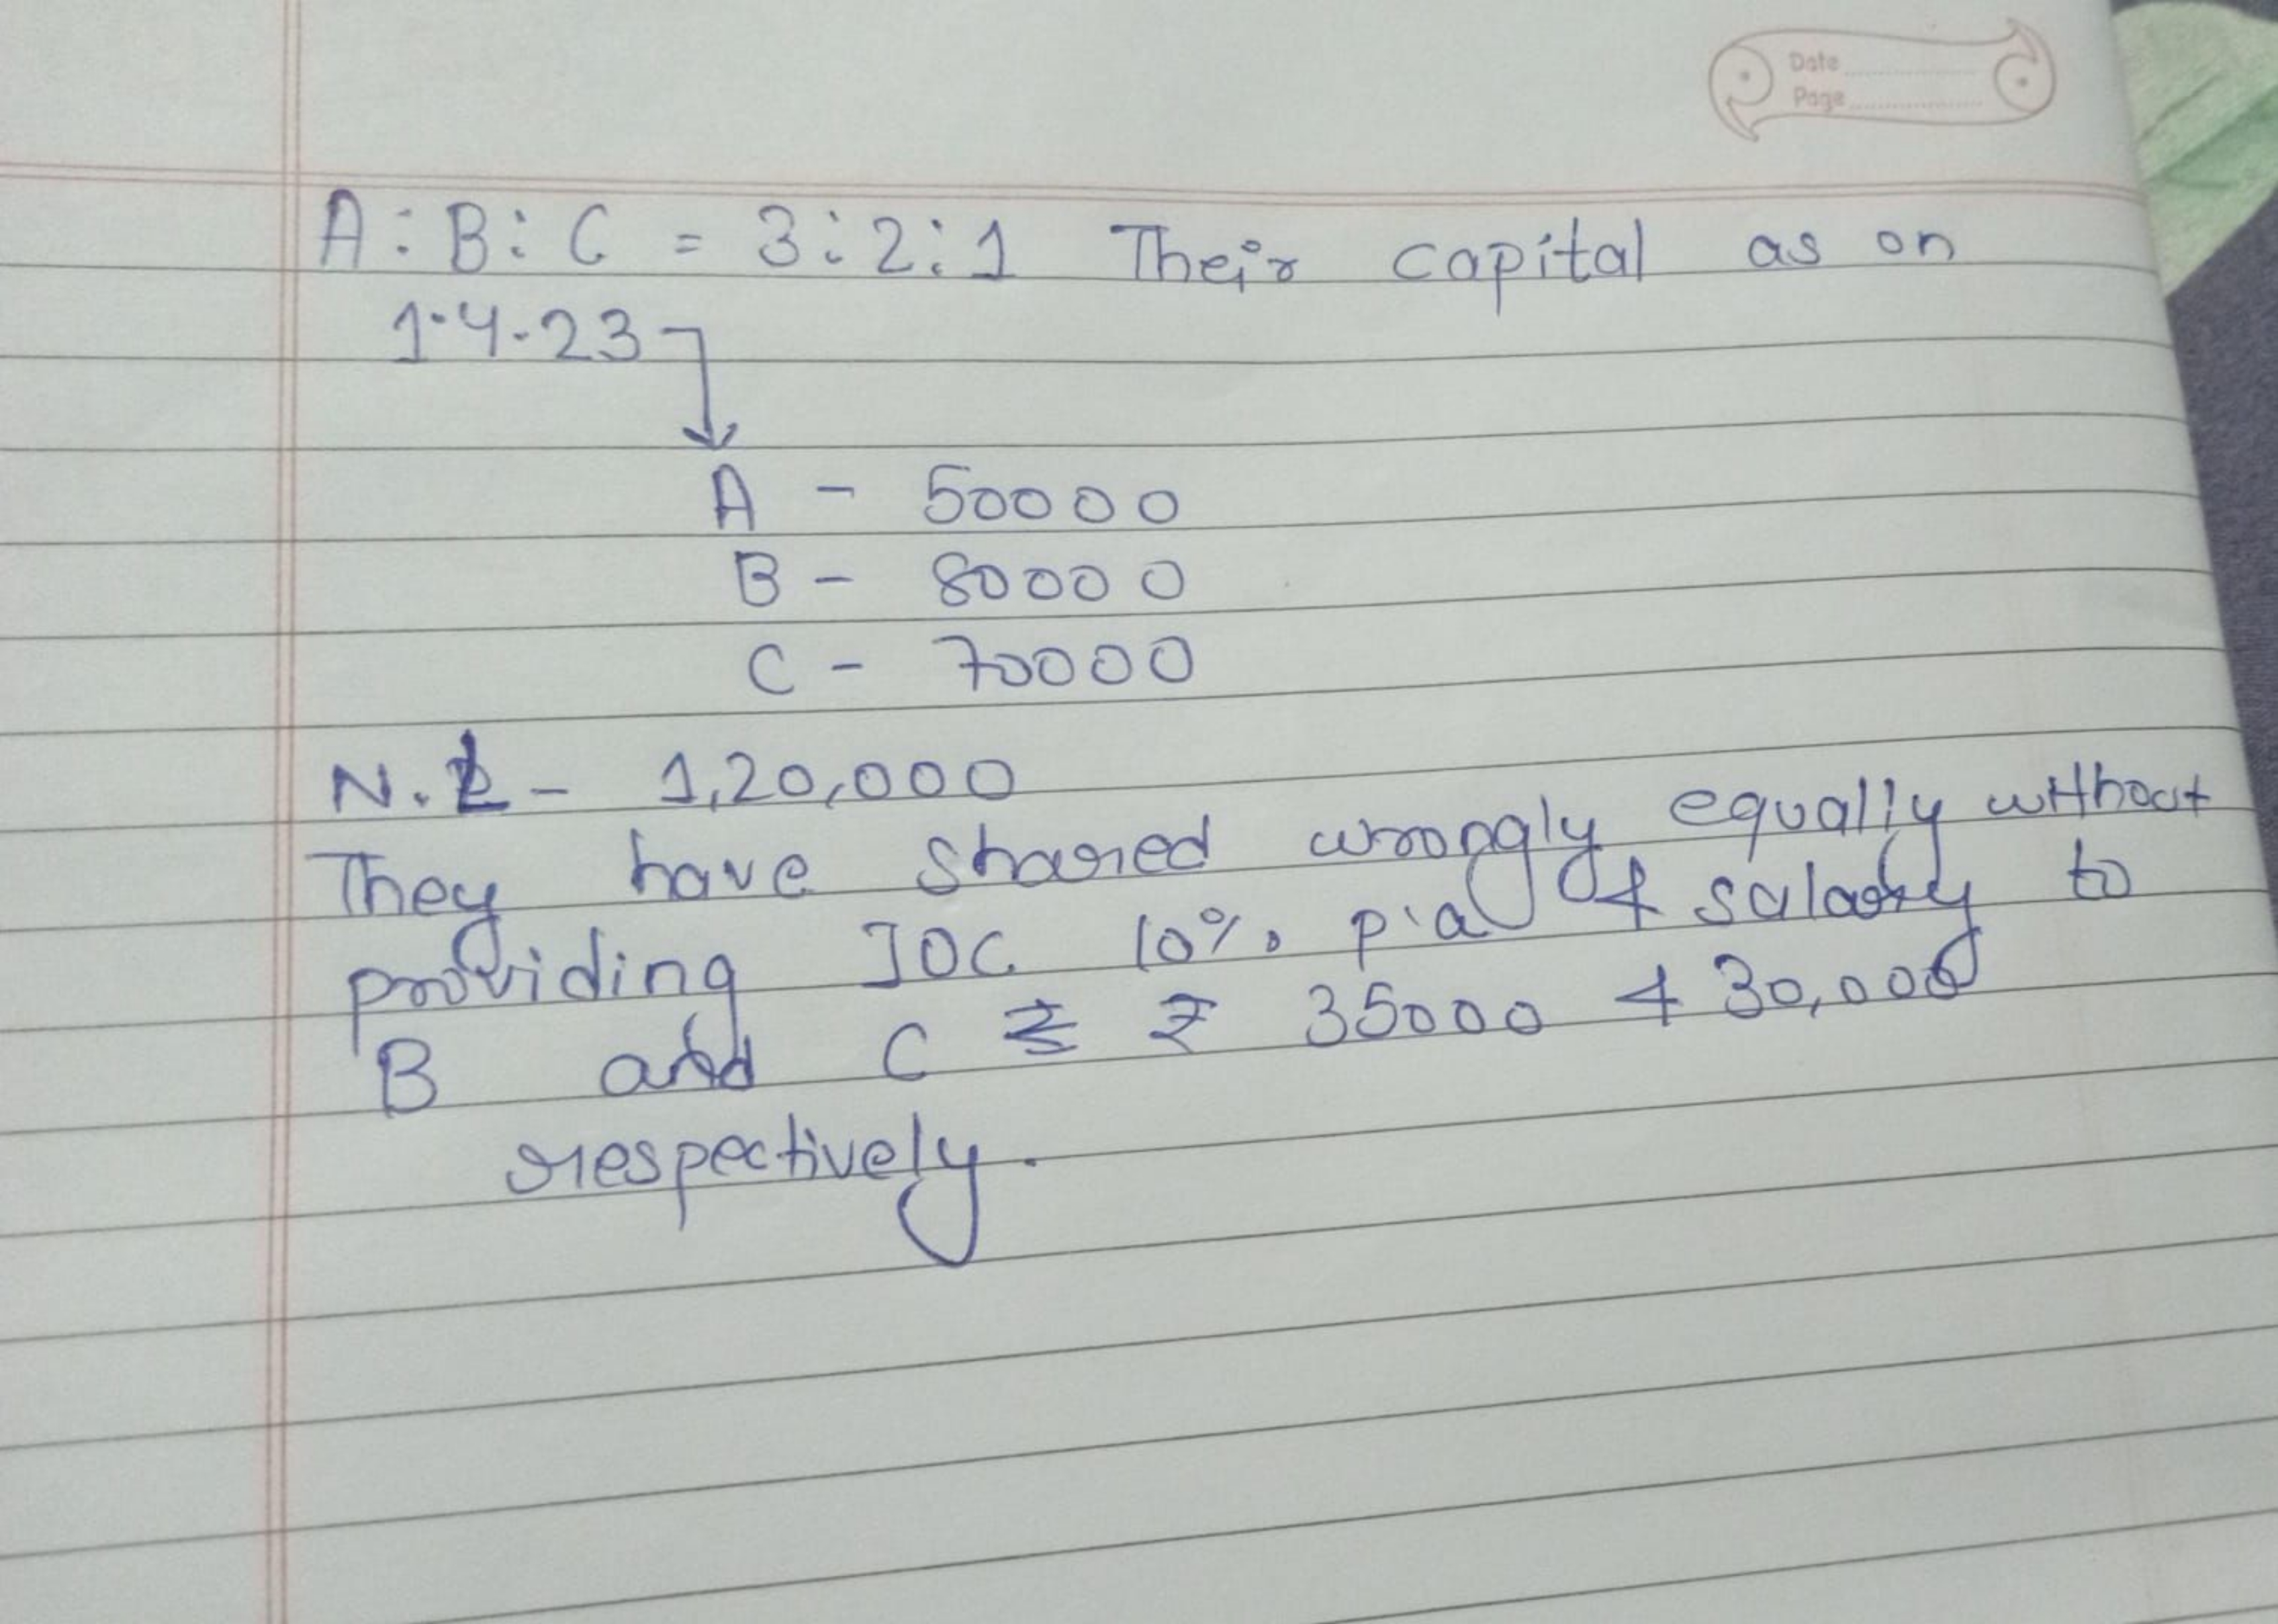 Date
Page
A : B : C = 3 : 2 : 1 Their capital as on
1.4.23
A - 50000
B - 80000
C - 70000
N.L - 1,20,000
They have shared wrongly equally without
providing IOC 10% p.a & salary to
B and C ₹ 35000 & 30,000
respectively.